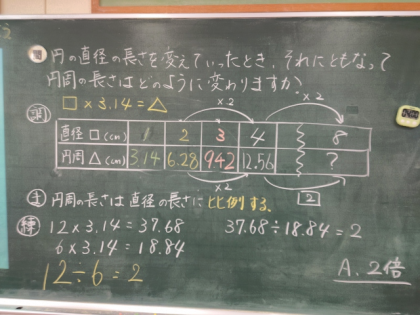 問 円の直径の長さを変えていったとき、それにともなって
円周の長さはどのように変わりますか。
□×3.14=△
×2 ×2
直径□(cm) 1 2 3 4 8
円周△(cm) 3.14 6.28 942 12.56 ?
×2 2
ま 円周の長さは直径の長さに比例する。
12×3.14=37.68 37.68÷18.84=2
6×3.14=18.84
12÷6=2
A. 2倍